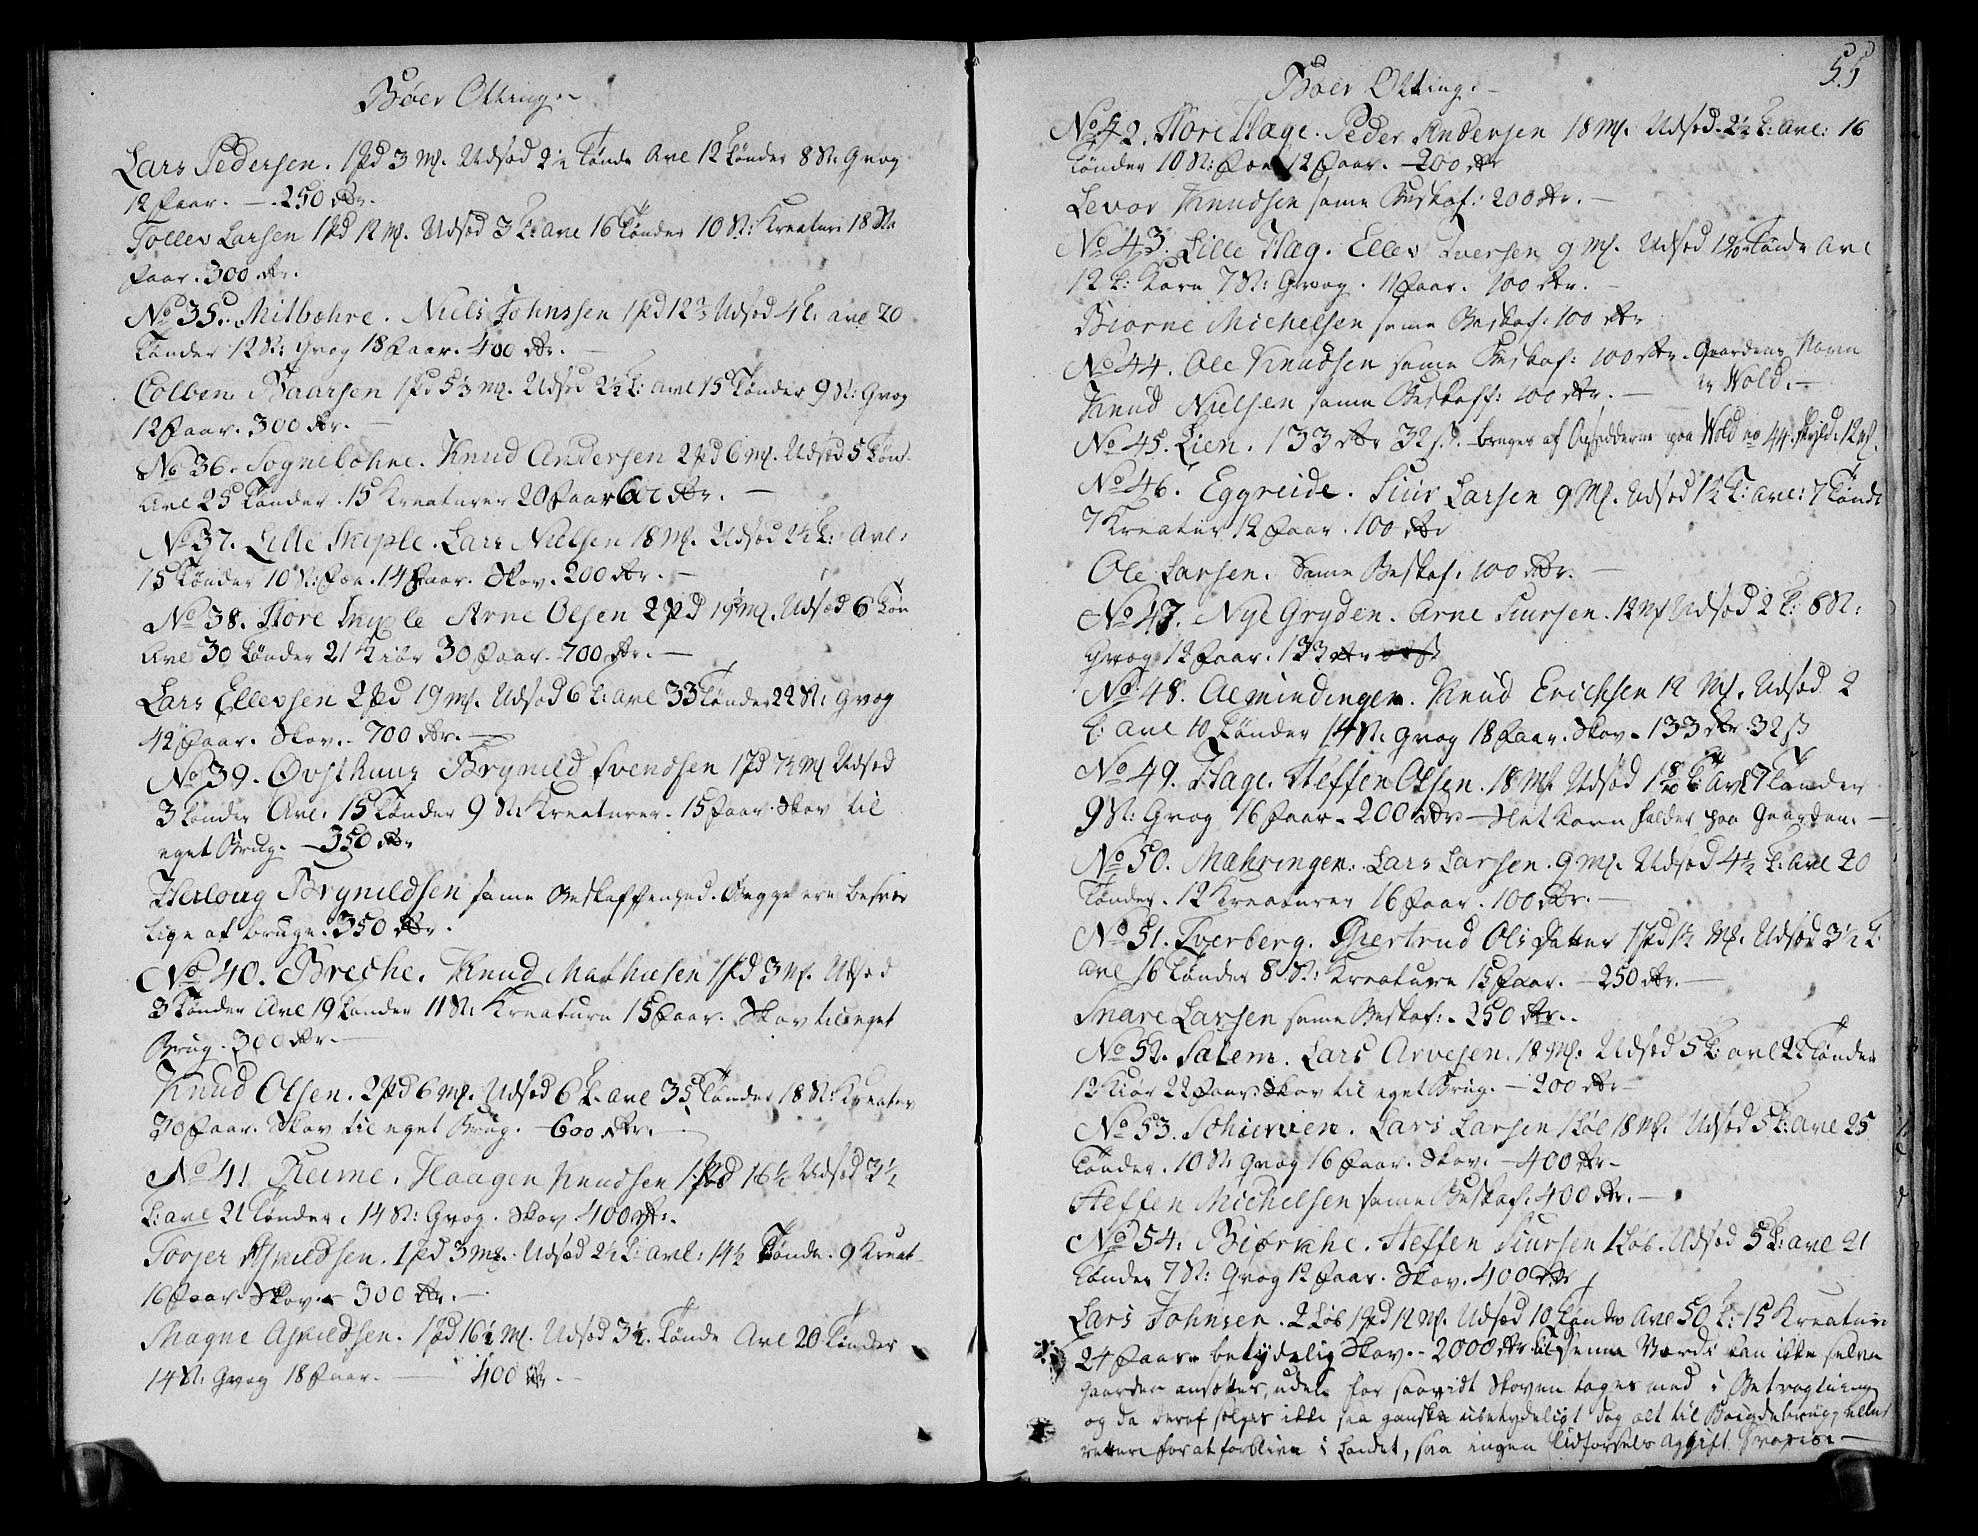 Bøer Otting.
Lars Pedersen. 1 Pd 3 M[. Udsæd 2½ Tønde Avl 12 Tønder 8 St: Qvæg
12 Faar. — 250 Rdr.
Tollev Larsen 1 Pd 12 M[. Udsæd 3 T: Avl 16 Tønder 10 St: Kreatur 18 St:
Faar. 300 Rdr.
No 35. Mitbøhre. Niels Johnssen 1 Pd 12 Udsæd 4 T: avl 20
Tønder 12 St: Qvæg 18 Faar. 400 Rdr. —
Colben Baarsen 1 Pd 5⅓ M[. Udsæd 2½ T: avl 15 Tønder 9 St: Qvæg
12 Faar. 300 Rdr. —
No 36. Sognebøhre. Knud Andersen 2 Pd 6 M[. Udsæd 5 Tønd.
Avl 25 Tønder. 15 Kreaturer 20 Faar 600 Rdr. —
No 37. Lille Skiple. Lars Nielsen 18 M[. Udsæd 2½ T: Avl:
15 Tønder 10 St: Fæe. 14 Faar. Skov. 200 Rdr. —
No 38. Store Skiple Arne Olsen 2 Pd 19½ M[. Udsæd 6 Tøn
Avl 30 Tønder 21 Kiør 30 Faar. 700 Rdr. —
Lars Ellevsen 2 Pd 19 M[. Udsæd 6 T: avl 33 Tønder 22 St: Qvæg
42 Faar. Skov. - 700 Rdr. —
No 39. Øvsthuus Brynild Svendsen 1 Pd 7½ M[ Udsæd
3 Tønder Avl. 15 Tønder 9 St: Kreaturer. 15 Faar. Skov til
eget Brug. — 350 Rdr
Herloug Brynildsen same Beskaffenhed. Begge ere besvær
lige at bruge. 350 Rdr.
No 40. Breche. Knud Mathiesen 1 Pd 3 M[. Udsæd
3 Tønder Avl 19 Tønder 11 St: Kreature 15 Faar. Skov til eget
Brug. 300 Rdr. —
Knud Olsen. 2 Pd 6 M[. Udsæd 6 T. avl 35 Tønder 18 St: Kreatur
30 Faar. Skov til eget Brug. — 600 Rdr.
No 41. Reime. Haagen Knudsen 1 Pd 16½ Udsæd 3½
T: avl 21 Tønder. 14 St: Qvæg. Skov. 400 Rdr.
Torjer Askildsen. 1 Pd 3 M[. Udsæd 2½ T: avl: 14½ Tønde. 9 Kreat
16 Faar. Skov. — 300 Rdr. —
Magne Askildsen. 1 Pd 16½ M[. Udsæd 3½ Tønde Avl 20 Tønder
14 St: Qvæg 18 Faar. — 400 Rdr. —
55
Bøer Otting. —
No 42. Store Hage. Peder Andersen 18 M[. Udsæd 2½ T: avl: 16
Tønder 10 St: Fæe 12 Faar. — 200 Rdr
Levor Knudsen same Beskaf: 200 Rdr. —
No 43. Lille Hag. Ellev Iversen 9 M[. Udsæd Tønde Avl
12 T: Korn 7 St: Qvæg. 11 Faar. 100 Rdr. —
Biorne Michelsen same Beskaf: 100 Rdr
No 44. Ole Knudsen same Beskaf: 100 Rdr. Gaardens Navn
er Wold. —
Knud Nielsen same Beskaff: 100 Rdr. —
No 45. Lien. 133 Rdr 32 s. bruges af Opsidderne paa Wold no 44. skyld. 12 M[.
No 46. Eggreide. Siur Larsen 9 M[. Udsæd 1½ T: avl: 7 Tønde
7 Kreatur 12 Faar. 100 Rdr
Ole Larsen. Same Beskaf: 100 Rdr. —
No 47. Nye Gryden. Arne Siursen. 12 M[ Udsæd 2 T: 8 St:
Qvæg 12 Faar. 133 Rdr
No 48. Almindingen. Knud Erichsen 12 M[. Udsæd 2
T: avl 10 Tønder 14 St: Qvæg 18 Faar. Skov. 133 Rdr 32 s
No 49. Hage. Steffen Olsen. 18 M[ Udsæd T: Avl 7 Tønder
9 St: Qvæg 16 Faar. 200 Rdr — Slet Korn falder paa Gaarden. —
No 50. Mahringen. Lars Larsen. 9 M[. Udsæd 4½ T: avl 20
Tønder. 12 Kreaturer 16 Faar. 100 Rdr. —
No 51. Tverberg. Giertrud Ols Datter 1 Pd 1½ M[. Udsæd 3½ T:
avl 16 Tønder 8 St: Kreature 15 Faar. — 250 Rdr. —
Snare Larsen same Beskaf: 250 Rdr.
No 52. Salem. Lars Arvesen. 18 M[. Udsæd 5 T: avl 22 Tønder
12 Kiør 22 Faar. Skov til eget Brug. — 200 Rdr —
No 53. Schierven. Lars Larsen 1 Løb 18 M[. Udsæd 5 T: avl 25
Tønder. 10 St: Qvæg 16 Faar. Skov. — 400 Rdr —
Steffen Michelsen same Beskaf. 400 Rdr. —
No 54. Biørkhe. Steffen Siursen 1 Løb. Udsæd 5 T: avl 21
Tønder 7 St: Qvæg 12 Faar. Skov. 400 Rdr
Lars Johnsen. 2 Løb 1 Pd 12 M[. Udsæd 10 Tønder Avl 50 T: 15 Kreature
24 Faar. betydelig Skov. — 2000 Rdr til denne Værdi kan ikke selve
Gaarden ansættes, uden for saavidt Skoven tages med i Betragtning
og da deraf sælges ikke saa ganske ubetydeligt dog alt til Bøigdebrug, eller
rettere for at forblive i Landet, saa ingen Udførsels Afgift svares —